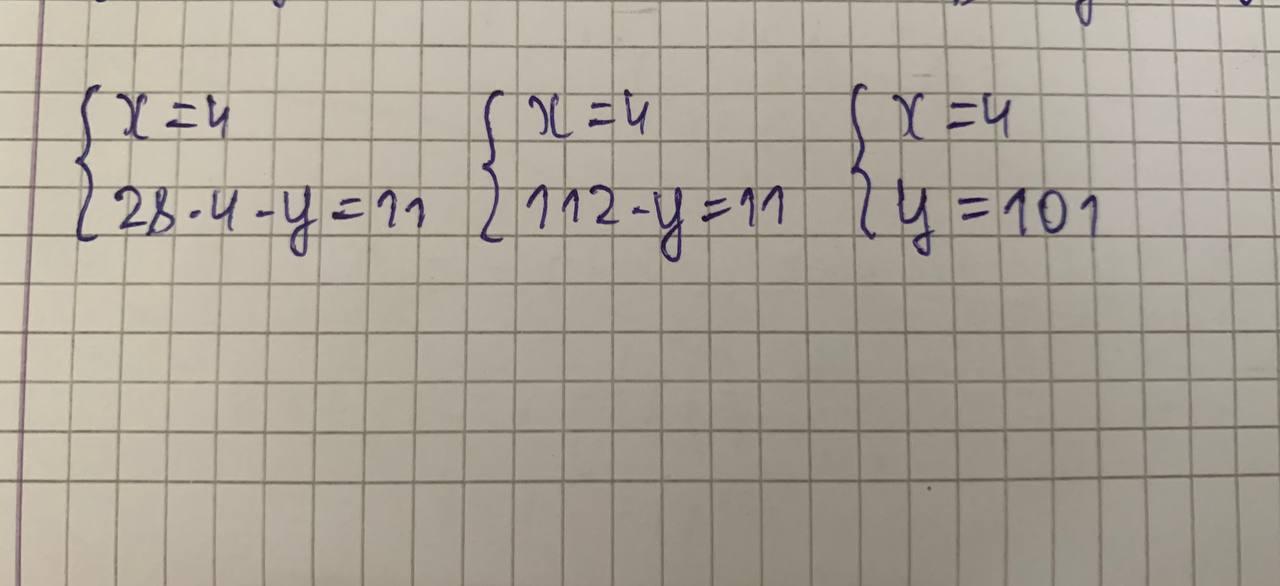 { x = 4
28 · 4 - y = 11
{ x = 4
112 - y = 11
{ x = 4
y = 101